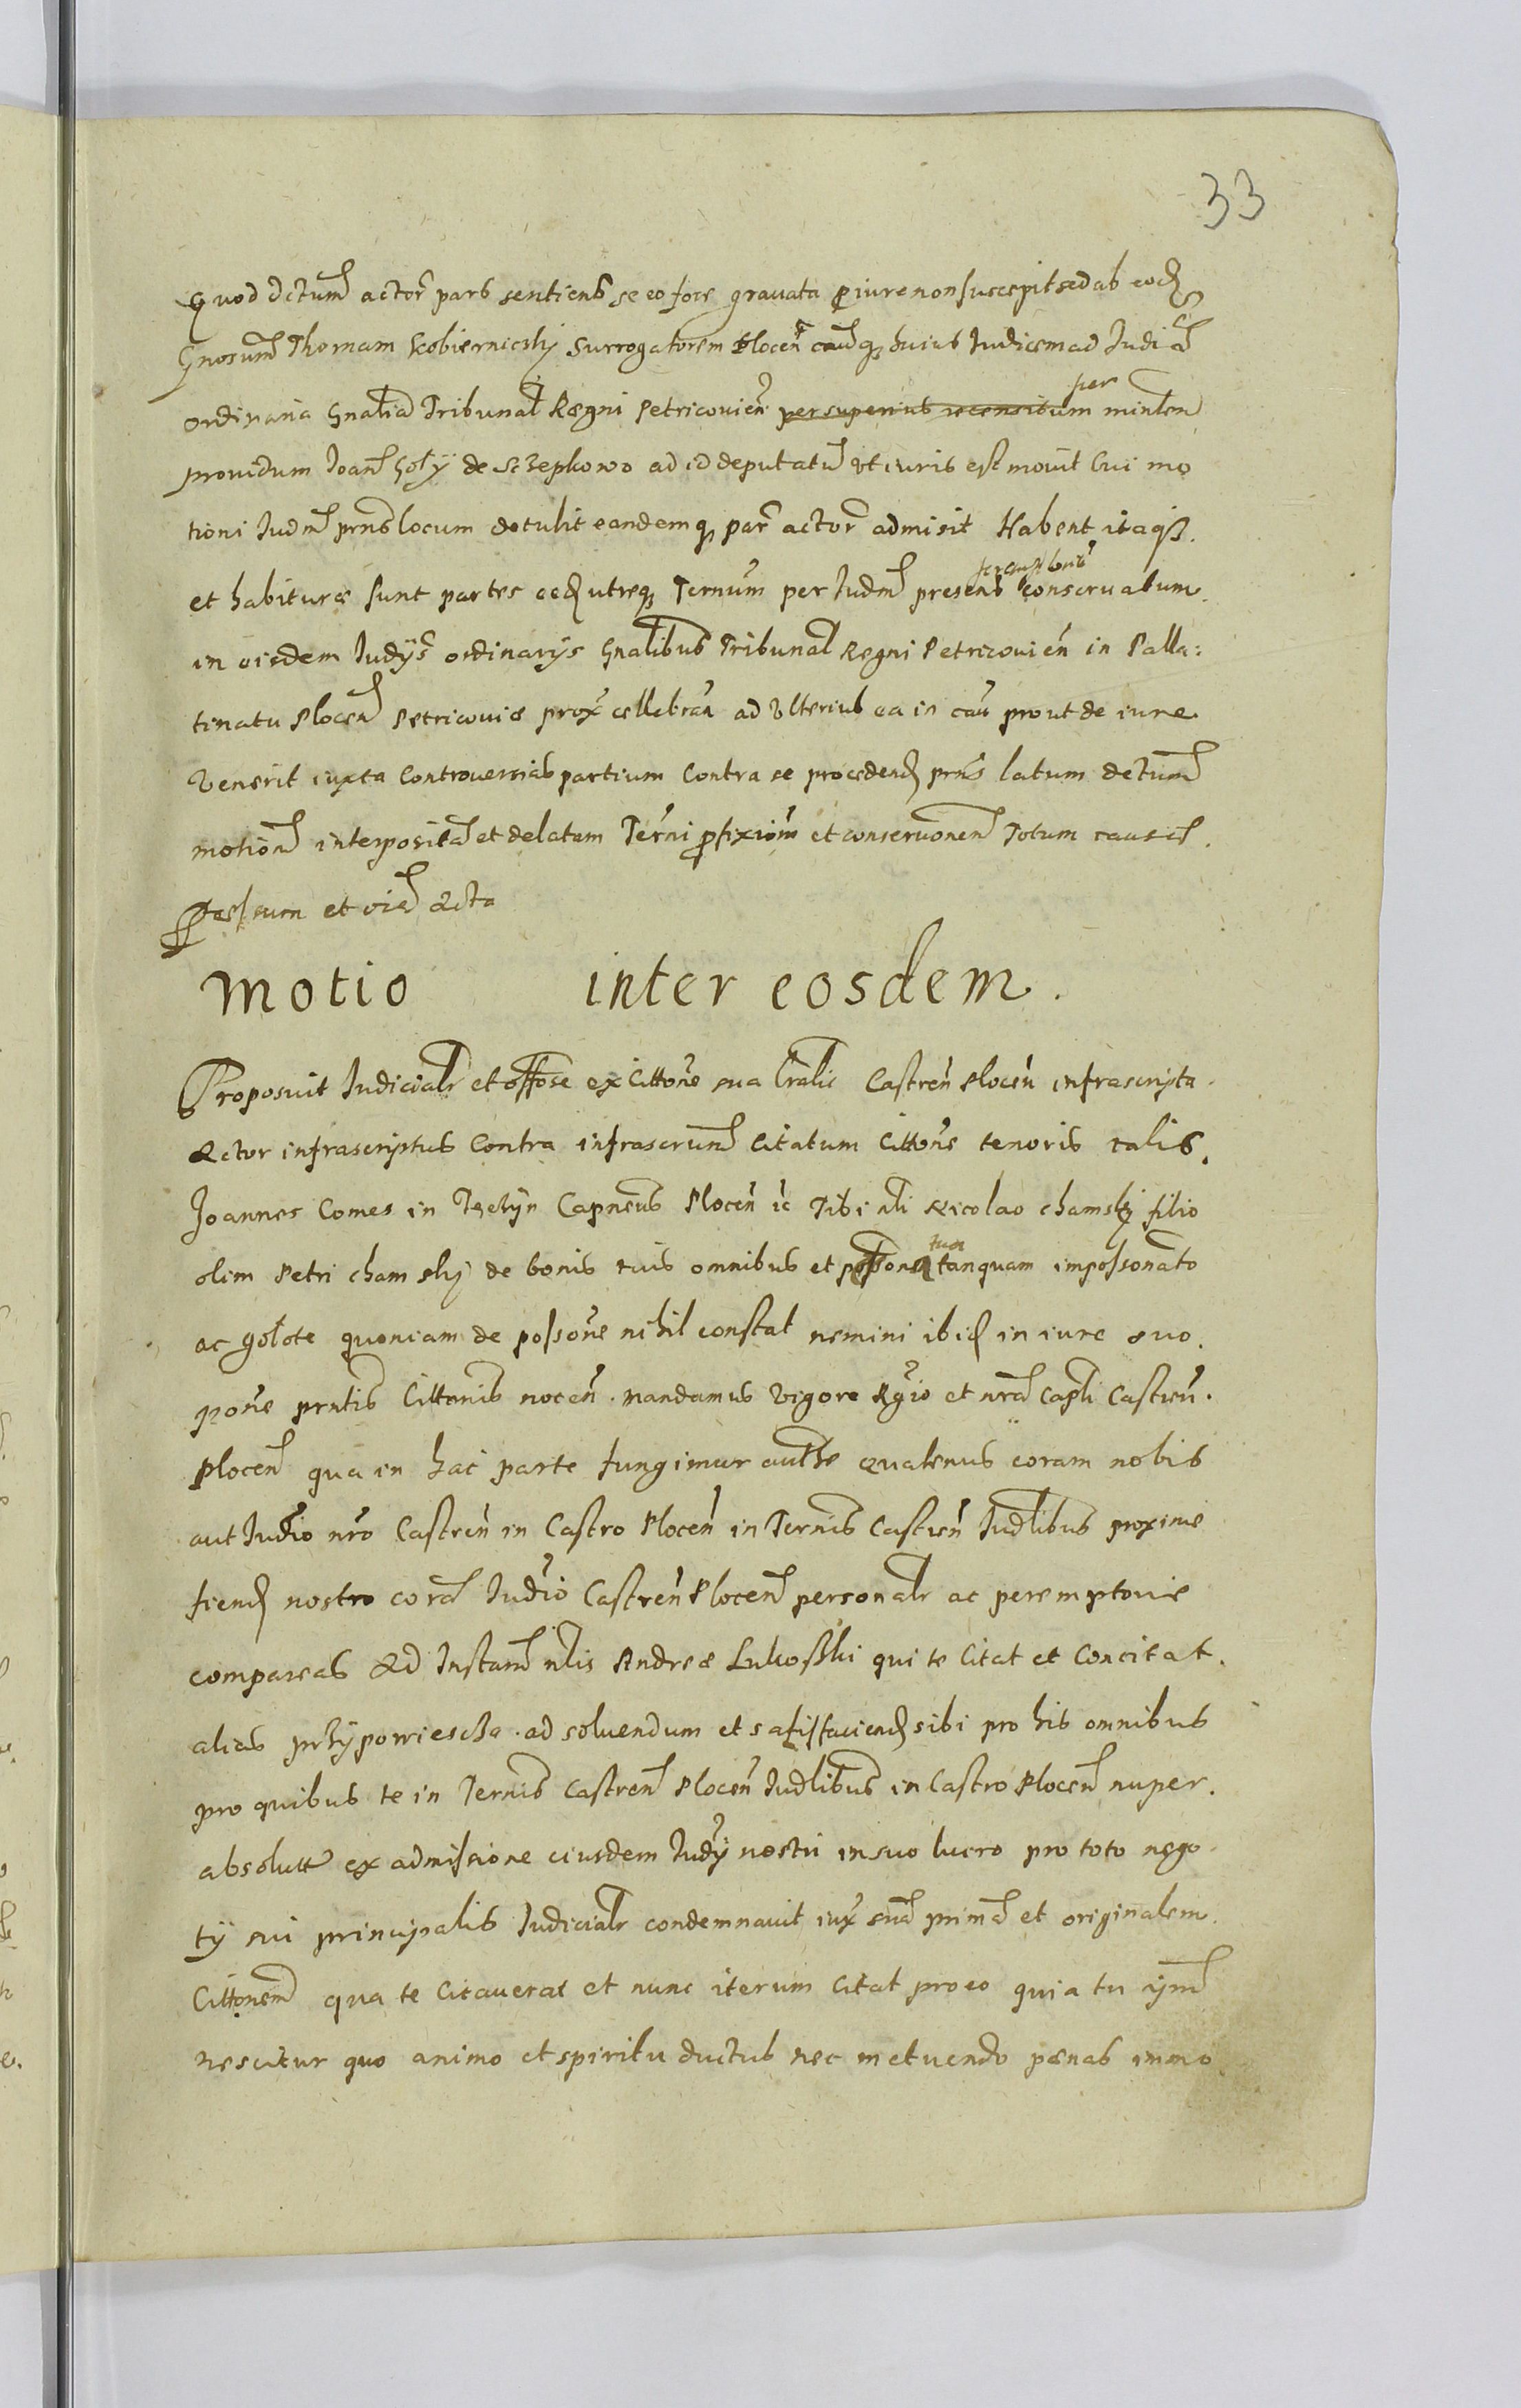 33
Quod dctum actor pars sentiens se eo fore gravata p iure non suscepit sed ab eod
Gnosum Thomam Scobiernicskj Surrogatorem Plocen causq huius Iudicem ad Iudicia
ordinaria Gnalia Tribunal Regni Petricovien per superius recensitum per minlem
providum Joan Goły de Sczepkowo ad id deputatu ut iuris est movit Cui mo
tioni Iudm prns locum detulit eandemq par actor admisit Habent itaq.
et habituræ sunt partes eæd utreq Ternum per Iudm presens conservatum
in eisdem Iudys ordinarys Gnalibus Tribunal Regni Petricovien in Palla:
tinatu Plocen Petricoviæ prox cellebran ad Ulterius ea in cau prout de iure
Venerit iuxta Controversias partium Contra se procedend prns latum detum
motion interposita et delatam Terni pfixion et conservonem Totum causæ
pcessum et vim Acta
Motio inter eosdem.
Proposuit Iudicialr et offose ex Cittone sua Lralis Castren Plocen infrascripta
Actor infrascriptus Contra infrascrum Citatum Cittone tenoris talis.
Joannes Comes in Tęczyn Capneus Plocen ic Tibi nli Nicolao chamskj filio
olim Petri chamskj de bonis tuis omnibus et possone tua tanquam impossonato
ac gołote quoniam de possone nihil constat nemini ibid in iure suo
pone prntis Cittonis nocen. Mandamus Vigore Rgio et nra Capli Castren.
Plocen qua in hac parte fungimur authe Quatenus coram nobis
aut Iudio nro Castren in Castro Plocen in Ternis Castren Iudlibus proxime
fiend nostro cora Iudio Castren Plocen personalr ac peremptorie
compareas Ad Instam nlis Andreæ Lukosski qui te Citat et Concitat.
alias przypowiescza ad solvendum et satisfaciend sibi pro his omnibus
pro quibus te in Ternis Castren Plocen Iudlibus in Castro Plocen nuper.
absolutt ex admissione eiusdem Iudy nostri in suo lucro pro toto nego
ty sui principalis Iudicialr condemnavit iux sua prima et originalem
Cittonem qua te Citaverat et nunc iterum Citat pro eo quia tu ipm
nescitur quo animo et spiritu ductus nec metuendo pænas immo